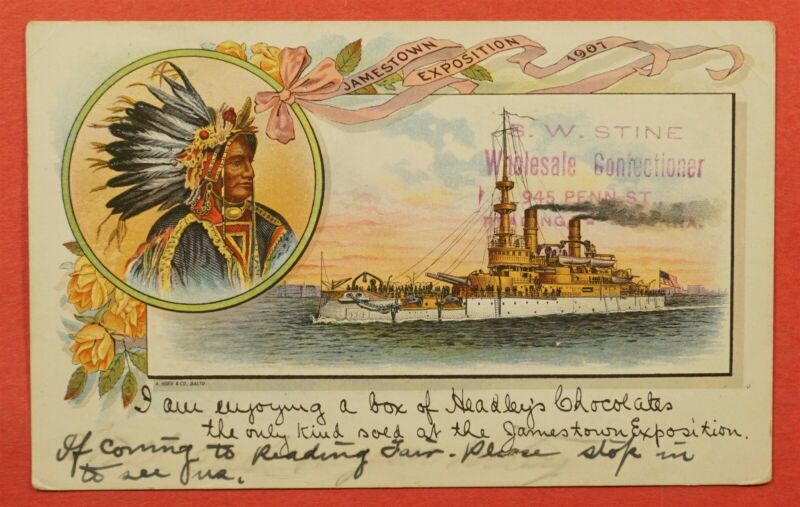 JAMESTOWN EXPOSITION 1907
S. W. STINE
Wholesale Confectioner
945 PENN ST.,
A. HOEN & CO., BALTO
I am enjoying a box of Headley's Chocolates
the only kind sold at the Jamestown Exposition.
If coming to Reading Fair. Please stop in
to see us.